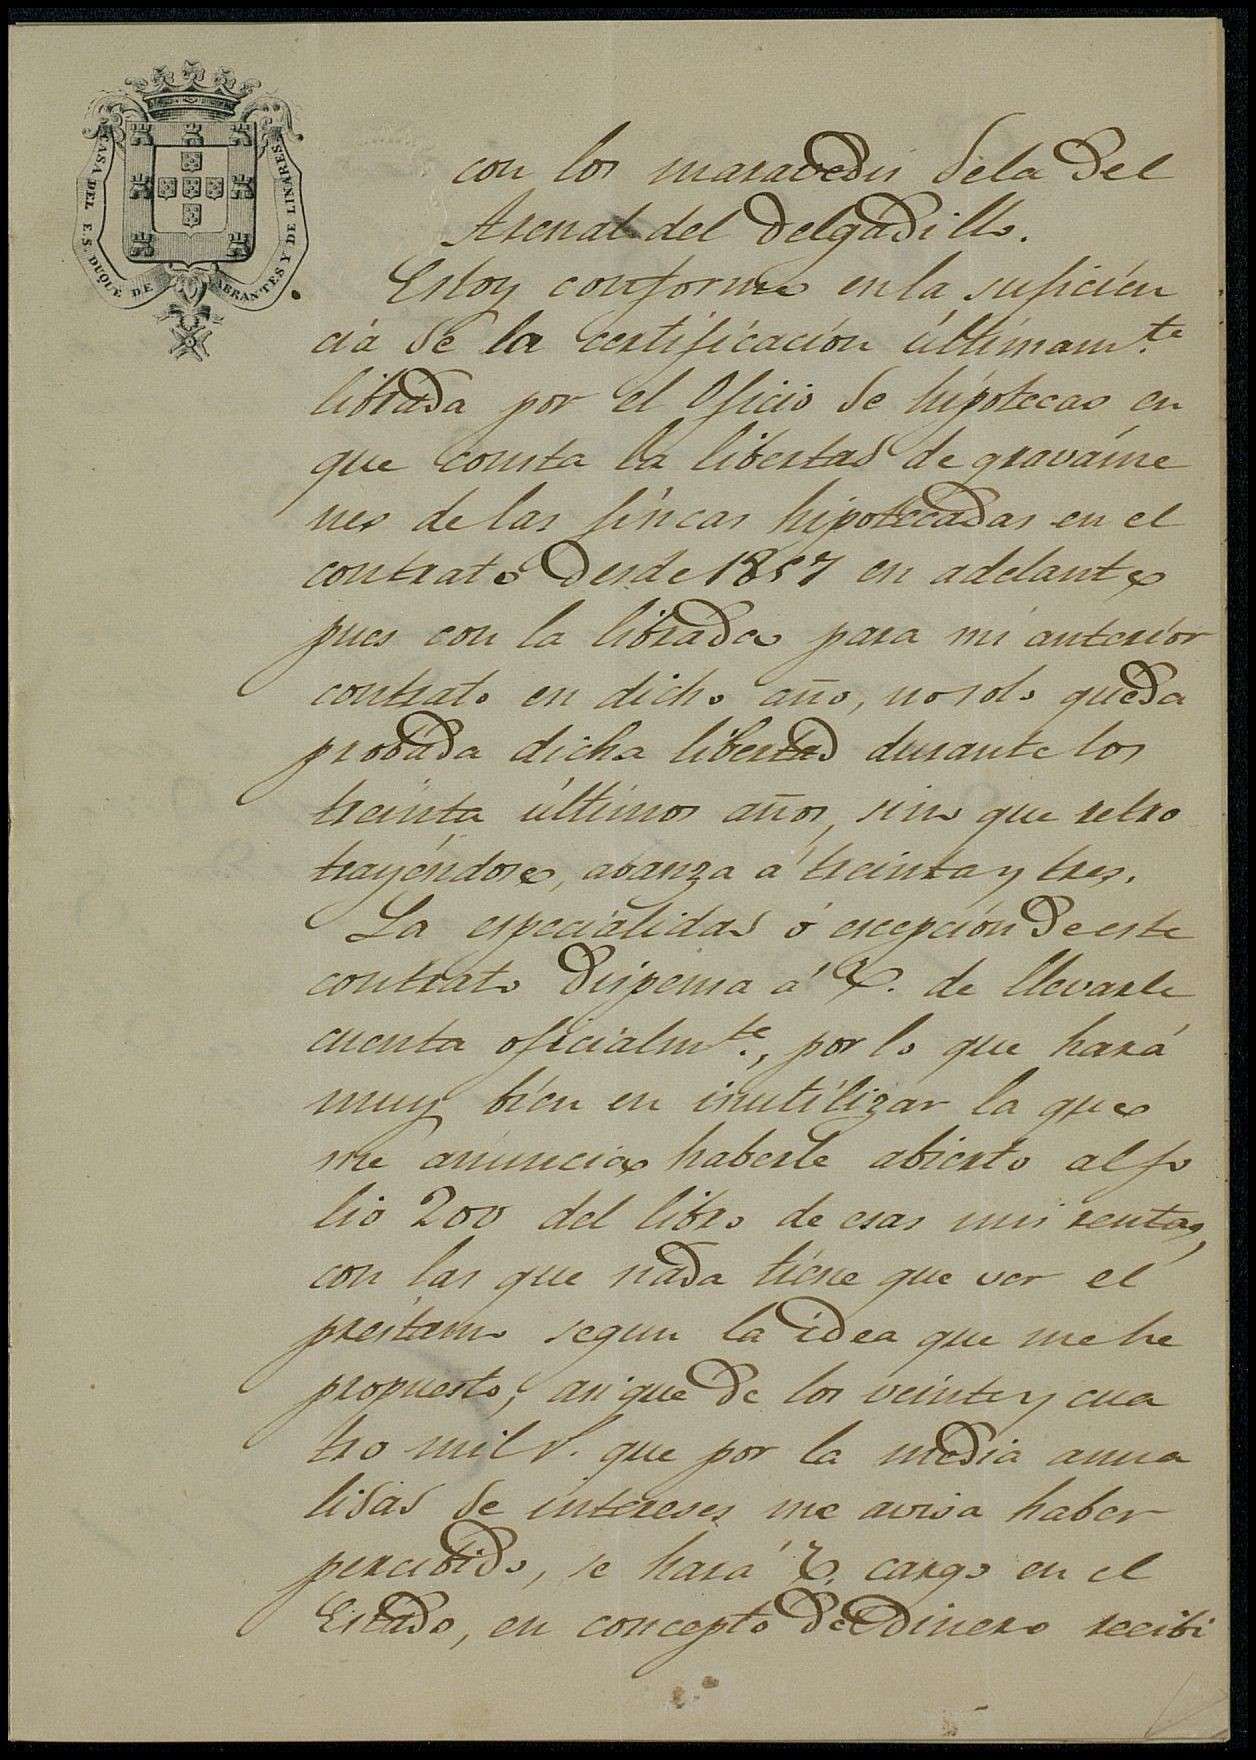 CASA DEL E.S. DUQUE DE ABRANTES Y DE LINARES
con los maravedis de la del
Arenal del Delgadillo.
Estoy conforme en la suficien
cia de la certificación últimam.te
librada por el Oficio de hipotecas en
que consta la libertad de graváme
nes de las fincas hipotecadas en el
contrato desde 1857 en adelante
pues con la librada para mi anterior
contrato en dicho año, no solo queda
probada dicha libertad durante los
treinta últimos años, sino que retro
trayéndose, abanza á treinta y tres.
La especialidad ó escepción de este
contrato dispensa á V. de llevarle
cuenta oficialm.te, por lo que hará
muy bien en inutilizar la que
me anuncia haberle abierto al fo
lio 200 del libro de esas mis rentas,
con las que nada tiene que ver el
préstamo segun la idea que me he
propuesto; asi que de los veinte y cua
tro mil r.s que por la media anua
lidad de intereses me avisa haber
percibido, se hará V. cargo en el
Estado, en concepto de Dinero recibi